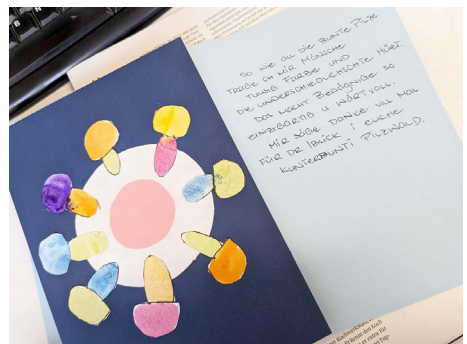 SO WIE ALL DIE BUNTE PILZE
TRÄGE ÖH MIR MÖNSCHE
FARBE UND
DIE UNDERSCHIEDLICHSTE HÜET.
DAS MACHT BEGÄGNIGE SO
EINZIGARTIG U WÄRTVOLL.
MIR SÄGE DANKE VILL MAL
FÜR DR IBLICK I EUCHE
KUNTERBUNTI PILZWALD.